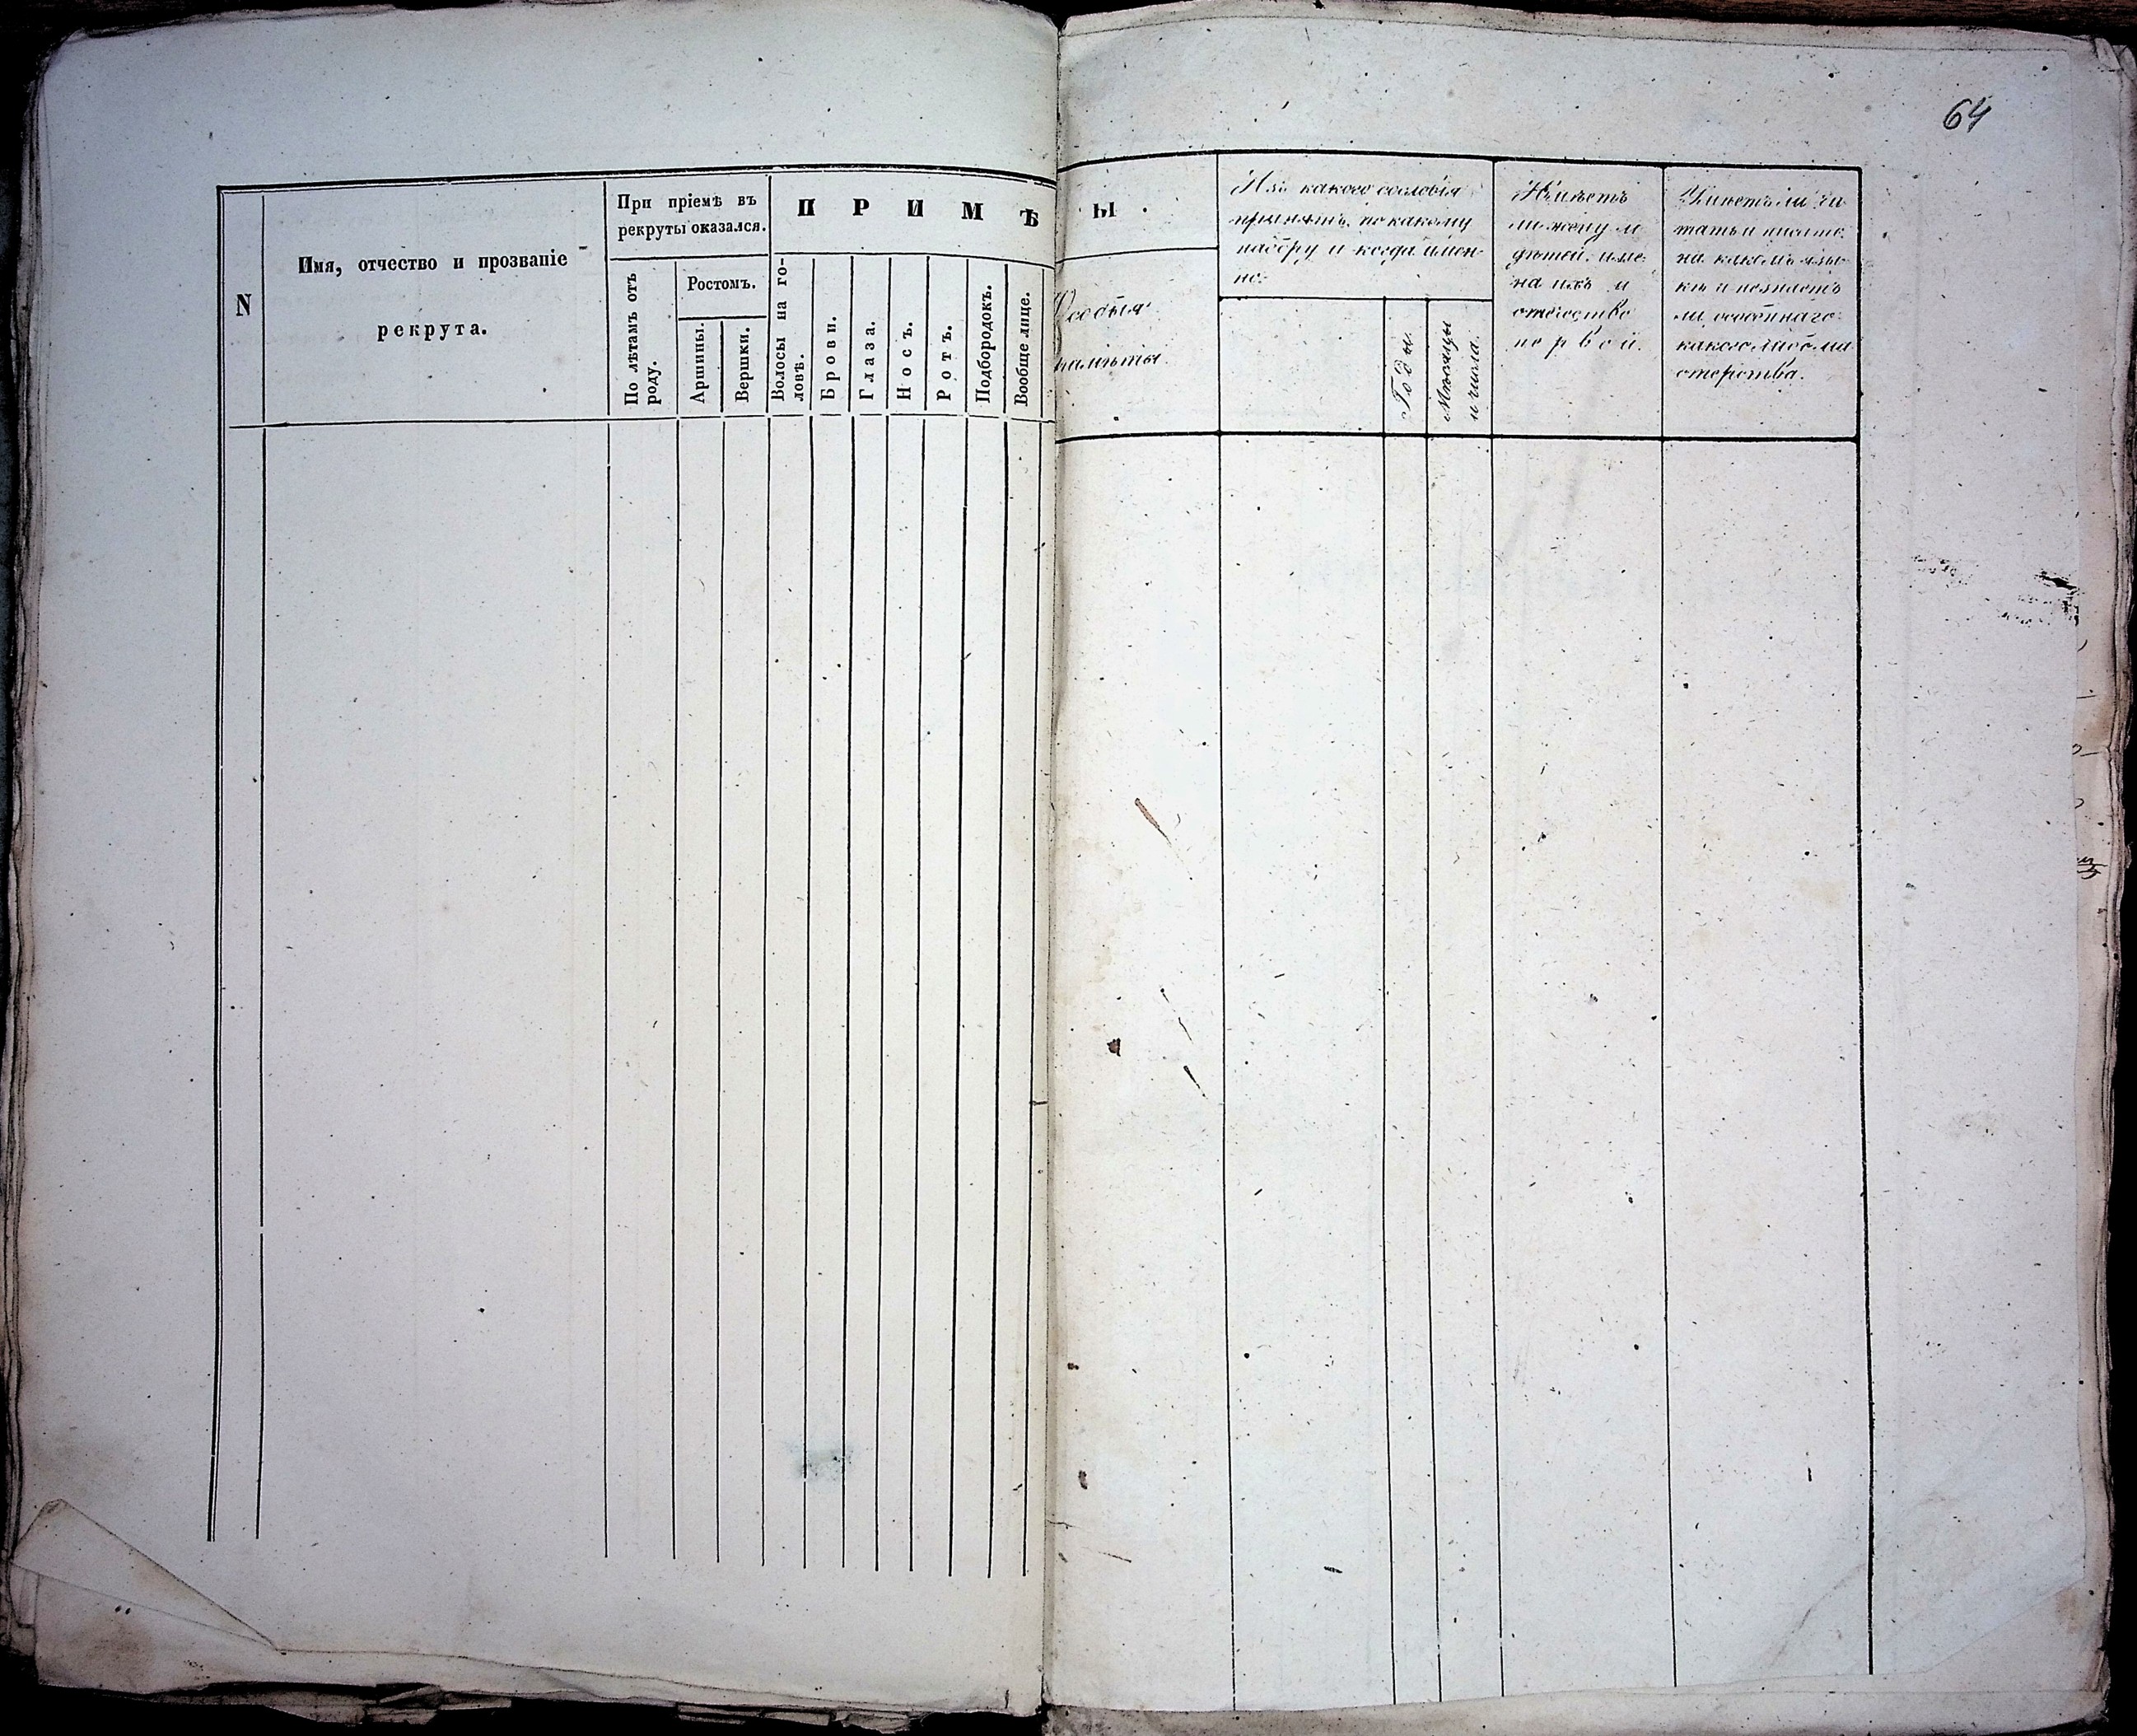 64
N
Имя, отчество и прозваніе
рекрута.
При пріемѣ въ
рекруты оказался.
По лѣтамъ отъ
роду.
Ростомъ.
Аршины.
Вершки.
ПРИМѢ
Волосы на го-
ловѣ.
Брови.
Глаза.
Носъ.
Ротъ.
Подбородокъ.
Вообще лице.
ы.
Особыя
Изъ какого сословія
принятъ, по какому
набору и когда имен-
но.
Годы.
Мѣсяцы
и числа.
Имѣетъ
ли жену и
дѣтей, име-
на ихъ и
отечество
первой.
Умѣетъ ли чи-
тать и писать,
на какомъ язы-
кѣ и не знаетъ
ли особеннаго
какого либо ма-
стерства.